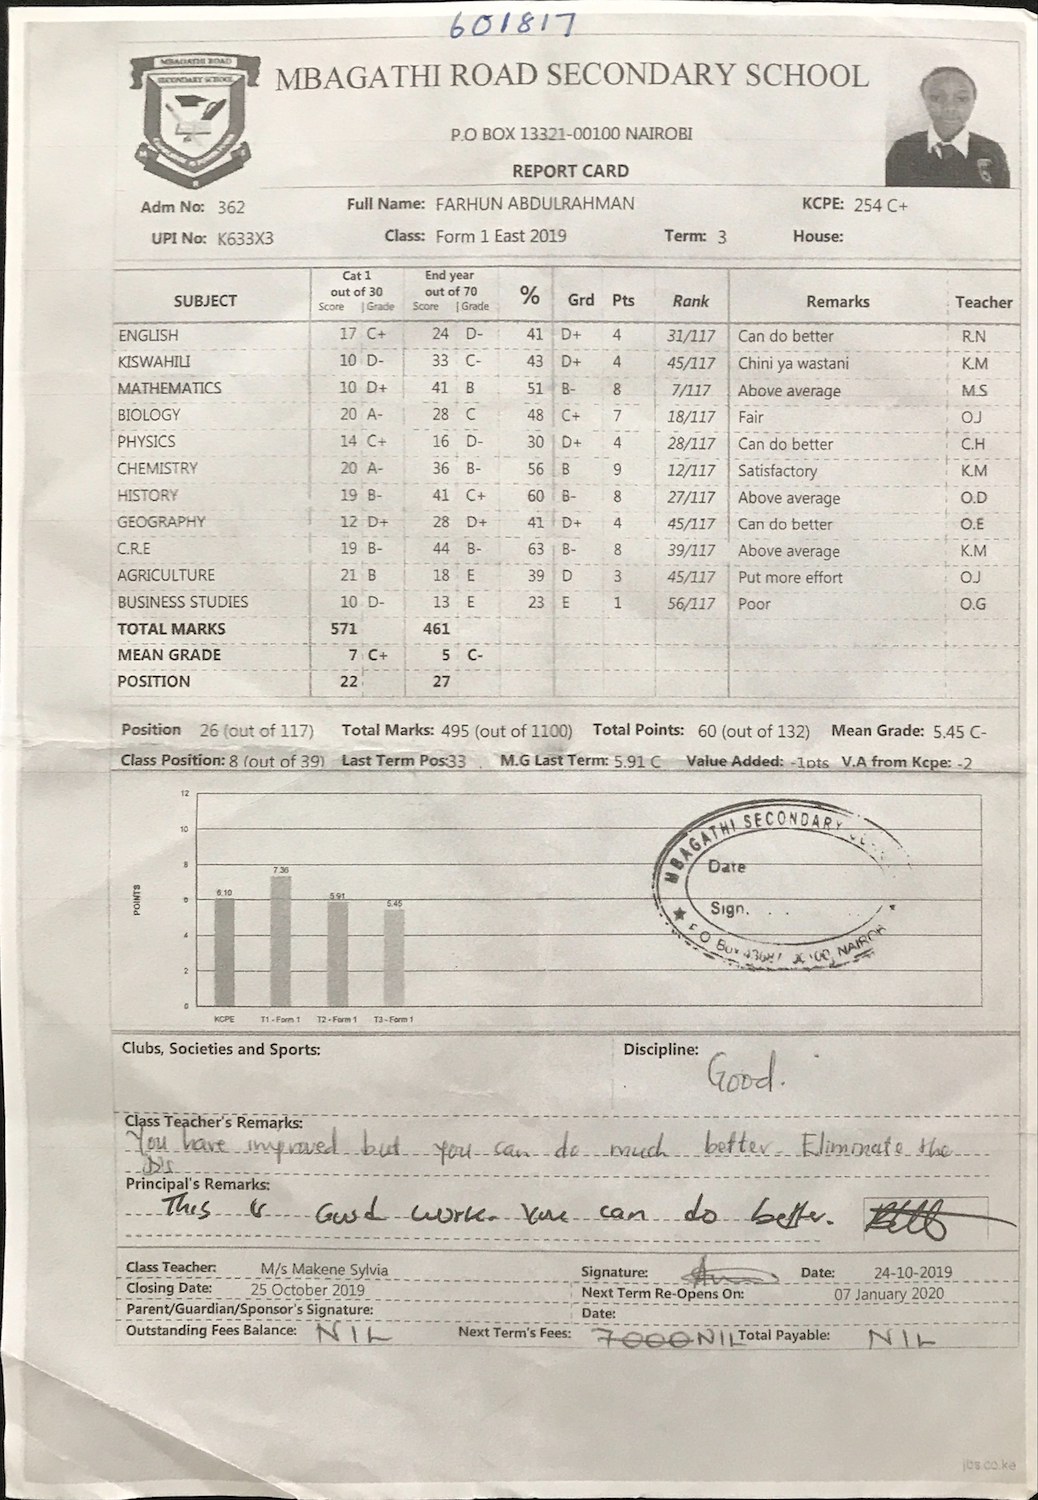 601817
MBAGATHI ROAD
SECONDARY SCHOOL
MBAGATHI ROAD SECONDARY SCHOOL
P.O BOX 13321-00100 NAIROBI
REPORT CARD
Adm No: 362 Full Name: FARHUN ABDULRAHMAN KCPE: 254 C+
UPI No: K633X3 Class: Form 1 East 2019 Term: 3 House:
SUBJECT Cat 1 out of 30 Score | Grade End year out of 70 Score | Grade % Grd Pts Rank Remarks Teacher
ENGLISH 17 C+ 24 D- 41 D+ 4 31/117 Can do better R.N
KISWAHILI 10 D- 33 C- 43 D+ 4 45/117 Chini ya wastani K.M
MATHEMATICS 10 D+ 41 B 51 B- 8 7/117 Above average M.S
BIOLOGY 20 A- 28 C 48 C+ 7 18/117 Fair OJ
PHYSICS 14 C+ 16 D- 30 D+ 4 28/117 Can do better C.H
CHEMISTRY 20 A- 36 B- 56 B 9 12/117 Satisfactory K.M
HISTORY 19 B- 41 C+ 60 B- 8 27/117 Above average O.D
GEOGRAPHY 12 D+ 28 D+ 41 D+ 4 45/117 Can do better O.E
C.R.E 19 B- 44 B- 63 B- 8 39/117 Above average K.M
AGRICULTURE 21 B 18 E 39 D 3 45/117 Put more effort OJ
BUSINESS STUDIES 10 D- 13 E 23 E 1 56/117 Poor O.G
TOTAL MARKS 571 461
MEAN GRADE 7 C+ 5 C-
POSITION 22 27
Position 26 (out of 117) Total Marks: 495 (out of 1100) Total Points: 60 (out of 132) Mean Grade: 5.45 C-
Class Position: 8 (out of 39) Last Term Pos:33 M.G Last Term: 5.91 C Value Added: -1pts V.A from Kcpe: -2
12
10
8
6
4
2
0
POINTS
6.10
7.36
5.91
5.45
KCPE T1 - Form 1 T2 - Form 1 T3 - Form 1
MBAGATHI SECONDARY
Date
Sign.
P O Box NAIROBI
Clubs, Societies and Sports: Discipline: Good.
Class Teacher's Remarks:
You have improved but you can do much better. Eliminate the
D's
Principal's Remarks:
This is Good work. You can do better.
Class Teacher: M/s Makene Sylvia Signature: Date: 24-10-2019
Closing Date: 25 October 2019 Next Term Re-Opens On: 07 January 2020
Parent/Guardian/Sponsor's Signature: Date:
Outstanding Fees Balance: NIL Next Term's Fees: 7000 NIL Total Payable: NIL
jbs.co.ke